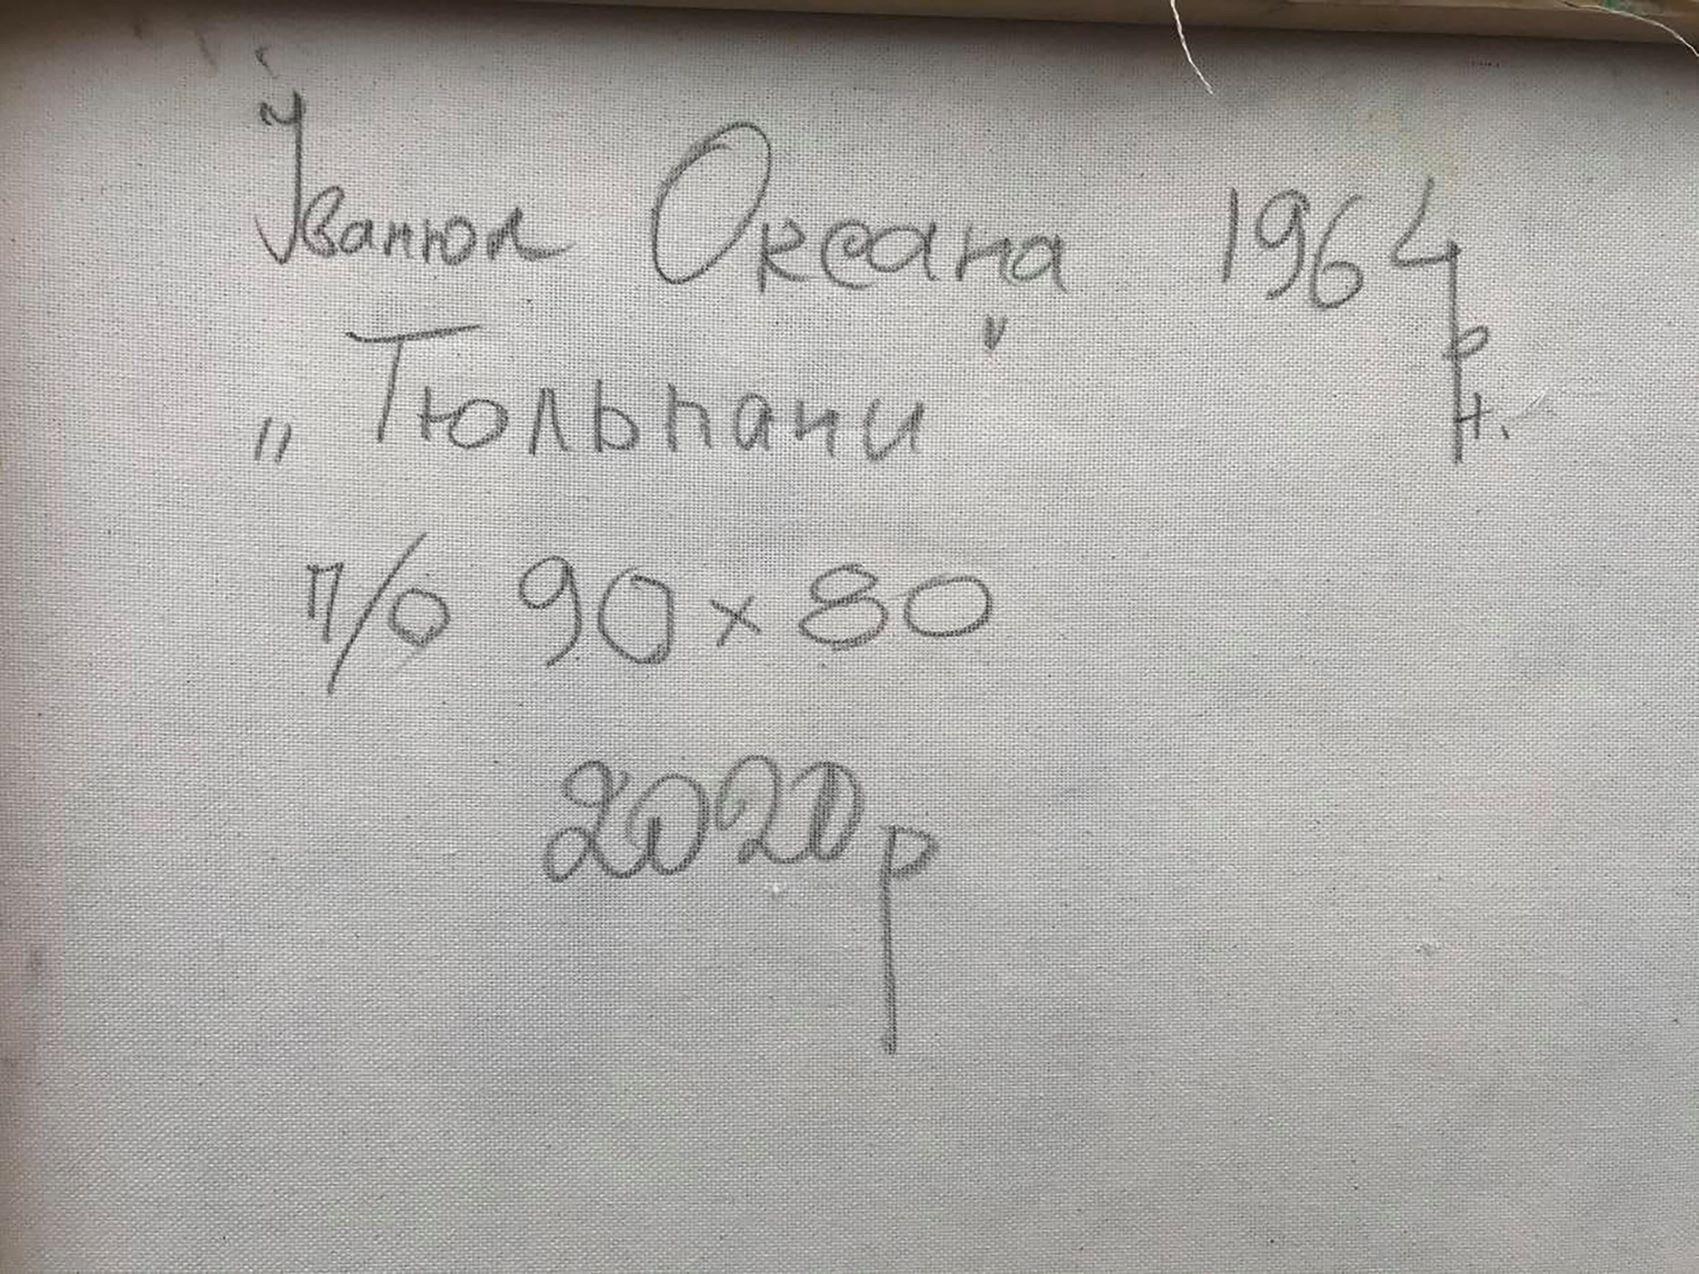 Іванюк Оксана 1964 р н.
„Тюльпани"
п/о 90 х 80
2020р